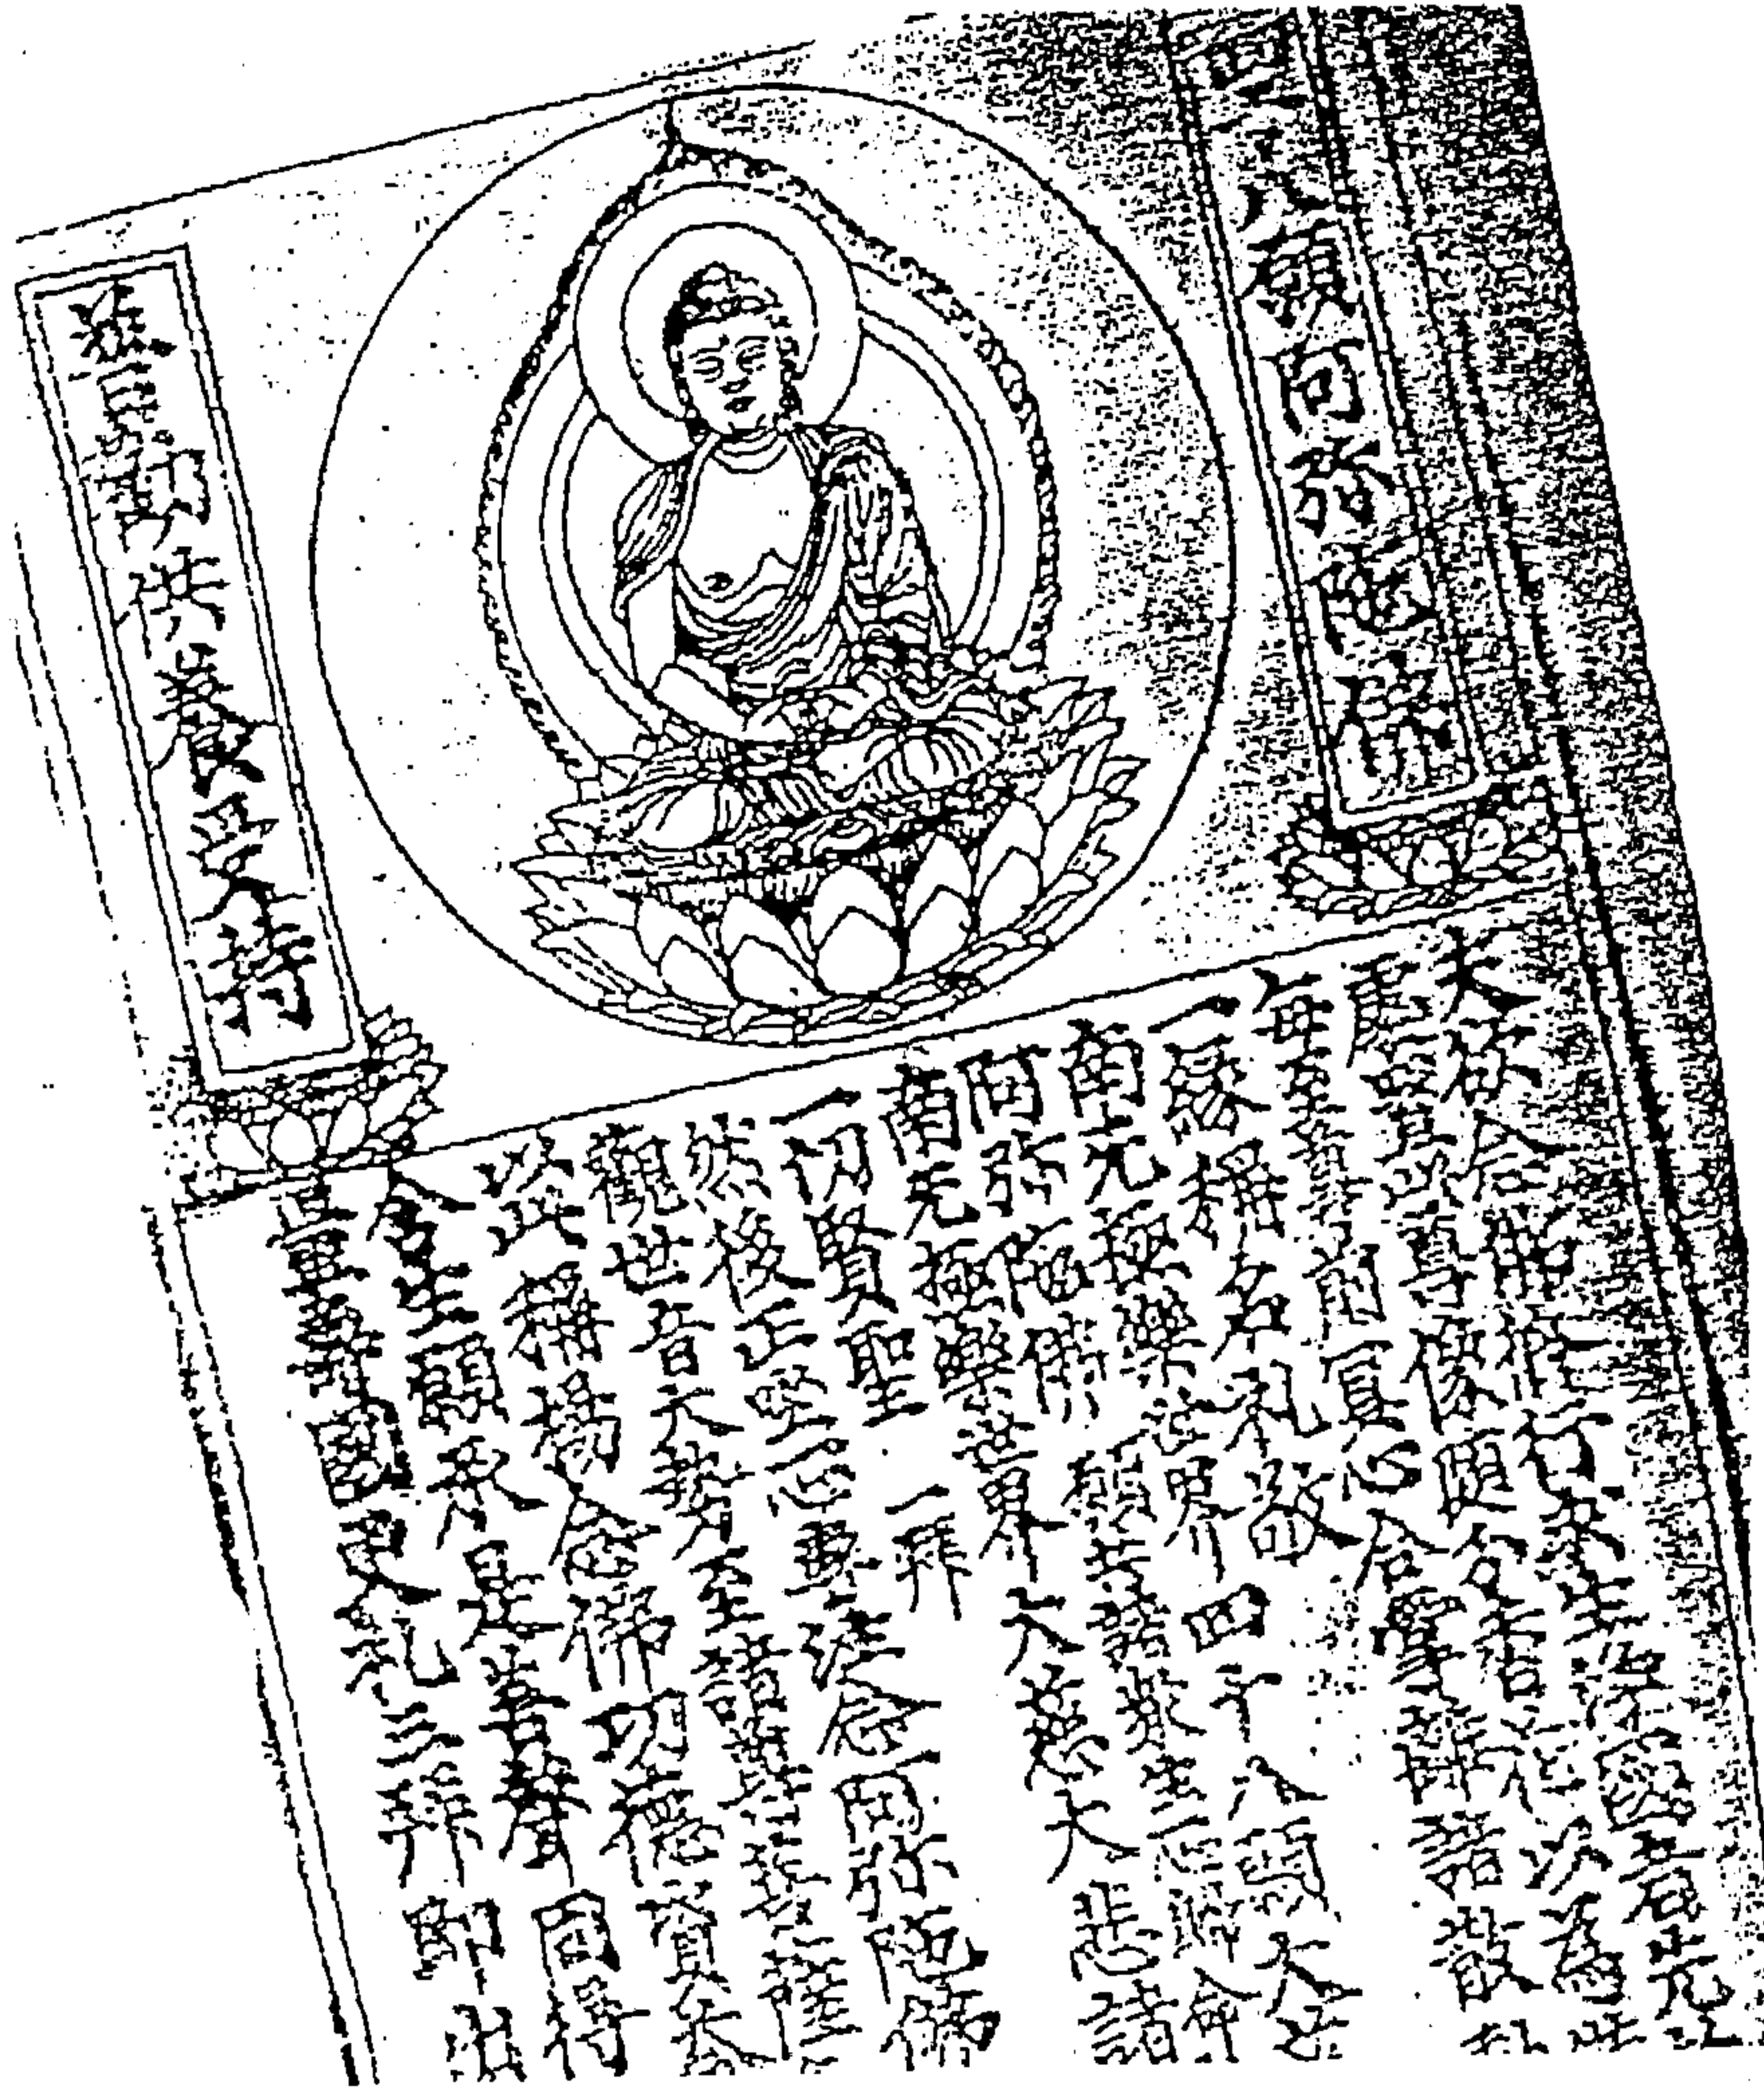 四十八願阿弥陀佛
普勸供養受持
夫欲念佛修行求生淨國者先
處置此尊像隨分香花以為
每至尊前冥心合掌離諸散
一緣稱名礼敬
南无極樂世界四十八願大
阿弥陀佛 願共諸衆生一心歸命
南无極樂世界大慈大悲諸
一切賢聖 一拜
然後正坐一心專注念阿弥陀佛
觀世音大勢至諸菩薩
以此稱揚念佛功德資
含生願承是善聲同得
更礼三拜即出